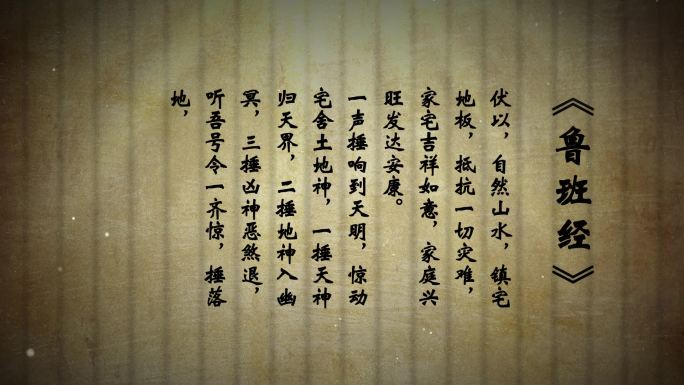 《鲁班经》
伏以，自然山水，镇宅
地板，抵抗一切灾难，
家宅吉祥如意，家庭兴
旺发达安康。
一声捶响到天明，惊动
宅舍土地神，一捶天神
归天界，二捶地神入幽
冥，三捶凶神恶煞退，
听吾号令一齐惊，捶落
地，